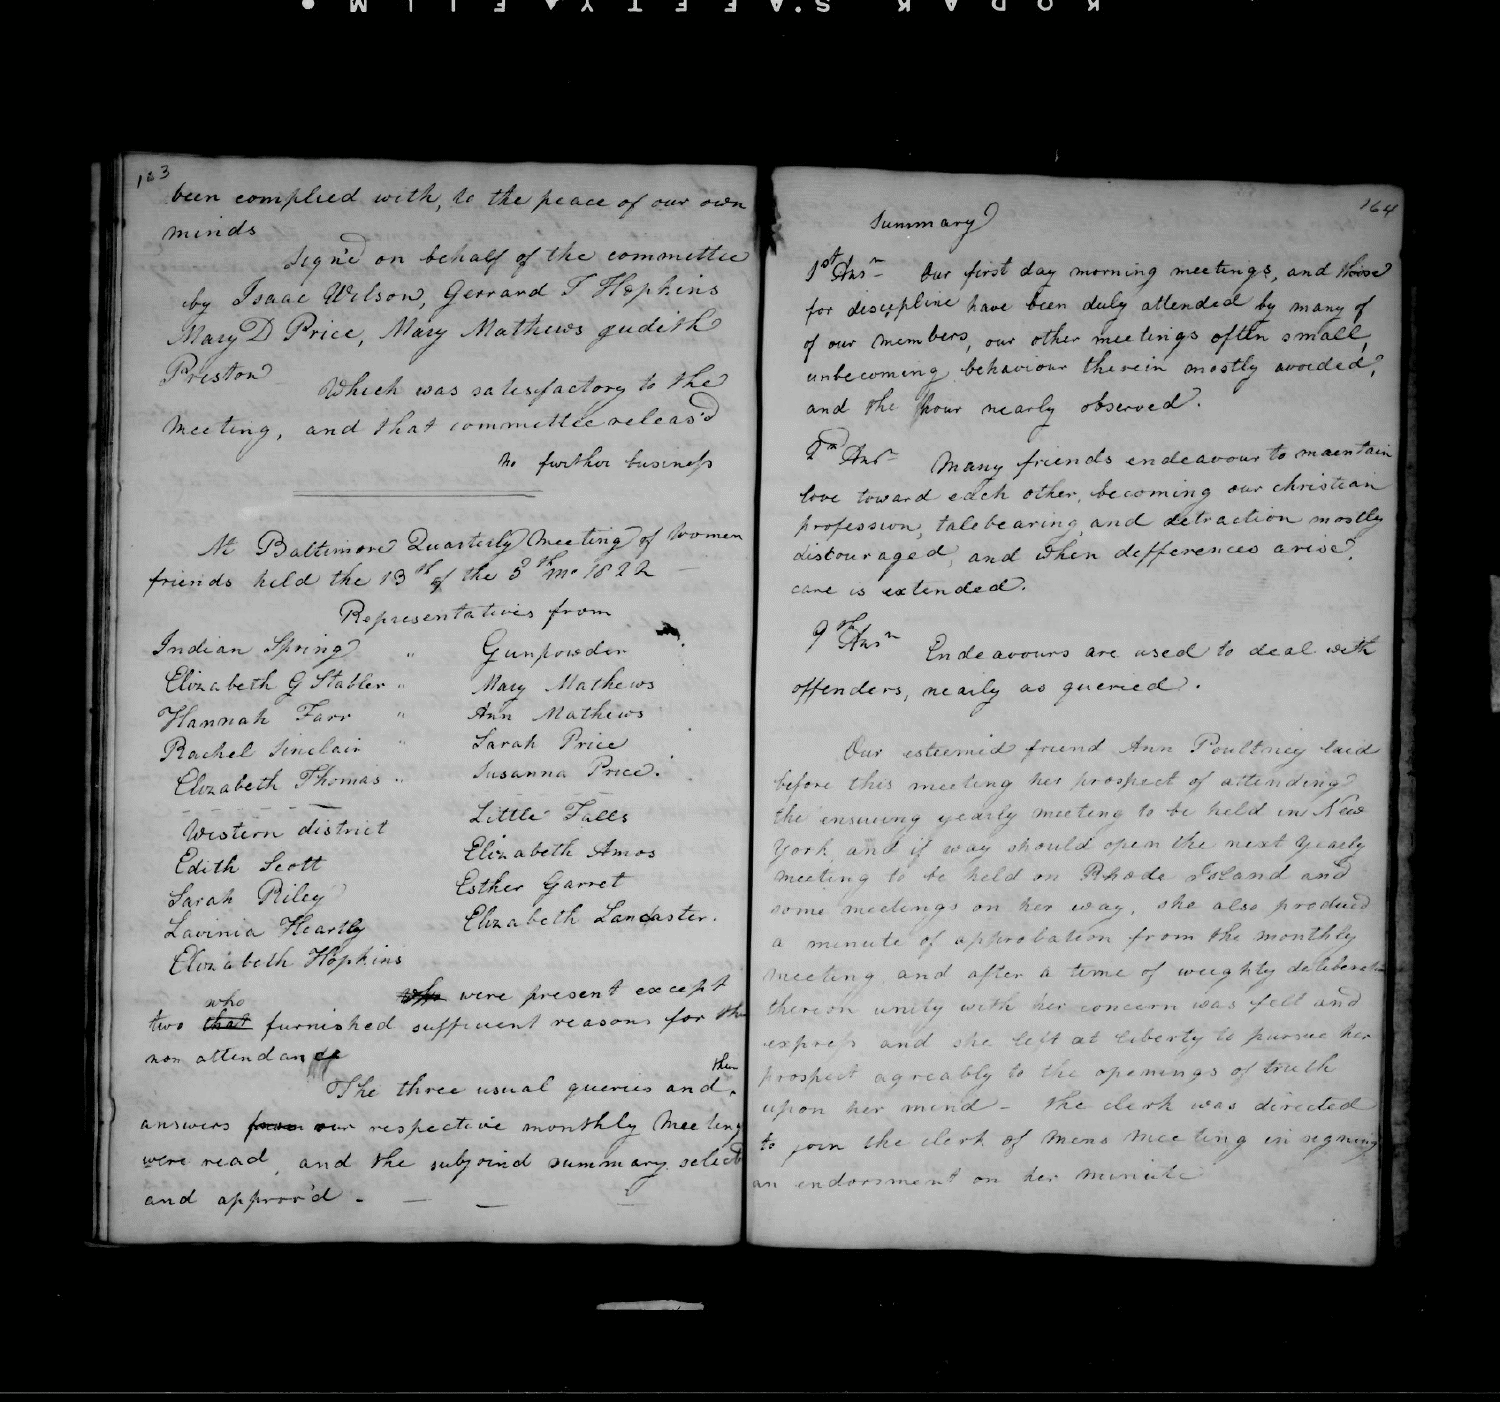 163
been complied with, to the peace of our own
minds
Sign'd on behalf of the committee
by Isaac Wilson, Gerrard T Hopkins
Mary D Price, Mary Mathews Judith
Preston
Which was satisfactory to the
Meeting, and that committee releas'd
No further business
At Baltimore Quarterly Meeting of Women
friends held the 13th of the 5th mo 1822
Representatives from
Indian Spring "
Elizabeth G Stabler "
Hannah Farr "
Rachel Sinclair "
Elizabeth Thomas "
Western district
Edith Scott
Sarah Riley
Lavinia Heartly
Elizabeth Hopkins
Gunpowder
Mary Mathews
Ann Mathews
Sarah Price
Susanna Price.
Little Falls
Elizabeth Amos
Esther Garret
Elizabeth Lancaster.
who were present except
who
two that furnished sufficient reasons for the
non attendance
their
The three usual queries and
answers from our respective monthly Meeting
were read, and the subjoind summary select
and approv'd -
164
Summary
1st Ansr Our first day morning meetings, and those
for discipline have been duly attended by many of
of our members, our other meetings often small,
unbecoming behaviour therein mostly avoided,
and the hour nearly observed.
2nd Ansr Many friends endeavour to maintain
love toward each other, becoming our christian
profession, talebearing and detraction mostly
discouraged, and when defferences arise,
care is extended.
9th Ansr Endeavours are used to deal with
offenders, nearly as queried.
Our esteemed friend Ann Poultney laid
before this meeting her prospect of attending
the ensuing yearly meeting to be held in New
York, and if way should open the next Yearly
meeting to be held on Rhode Island and
some meetings on her way, she also produced
a minute of approbation from the monthly
meeting, and after a time of weighty deliberation
thereon unity with her concern was felt and
express and she left at liberty to pursue her
prospect agreably to the openings of truth
upon her mind - the clerk was directed
to join the clerk of Mens Meeting in signing
an endorsment on her minute
KODAK SAFETY FILM